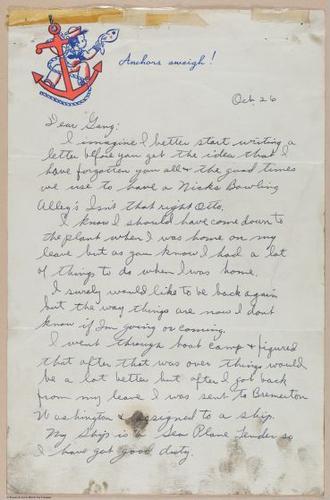 Anchors aweigh!
Oct. 26
Dear Gang:
I imagine I better start writing a
letter before you get the idea that I
have forgotten you all & the good times
we use to have a Nick's Bowling
Alley's Isn't that right Otto.
I know I should have come down to
the plant when I was home on my
leave but as you know I had a lot
of things to do when I was home.
I surely would like to be back again
but the way things are now I dont
know if I'm going or coming.
I went through boat camp & figured
that after that was over things would
be a lot better but after I got back
from my leave I was sent to Bremerton
Washington & assigned to a ship.
My ship is a Sea Plane Tender so
I have got good duty.